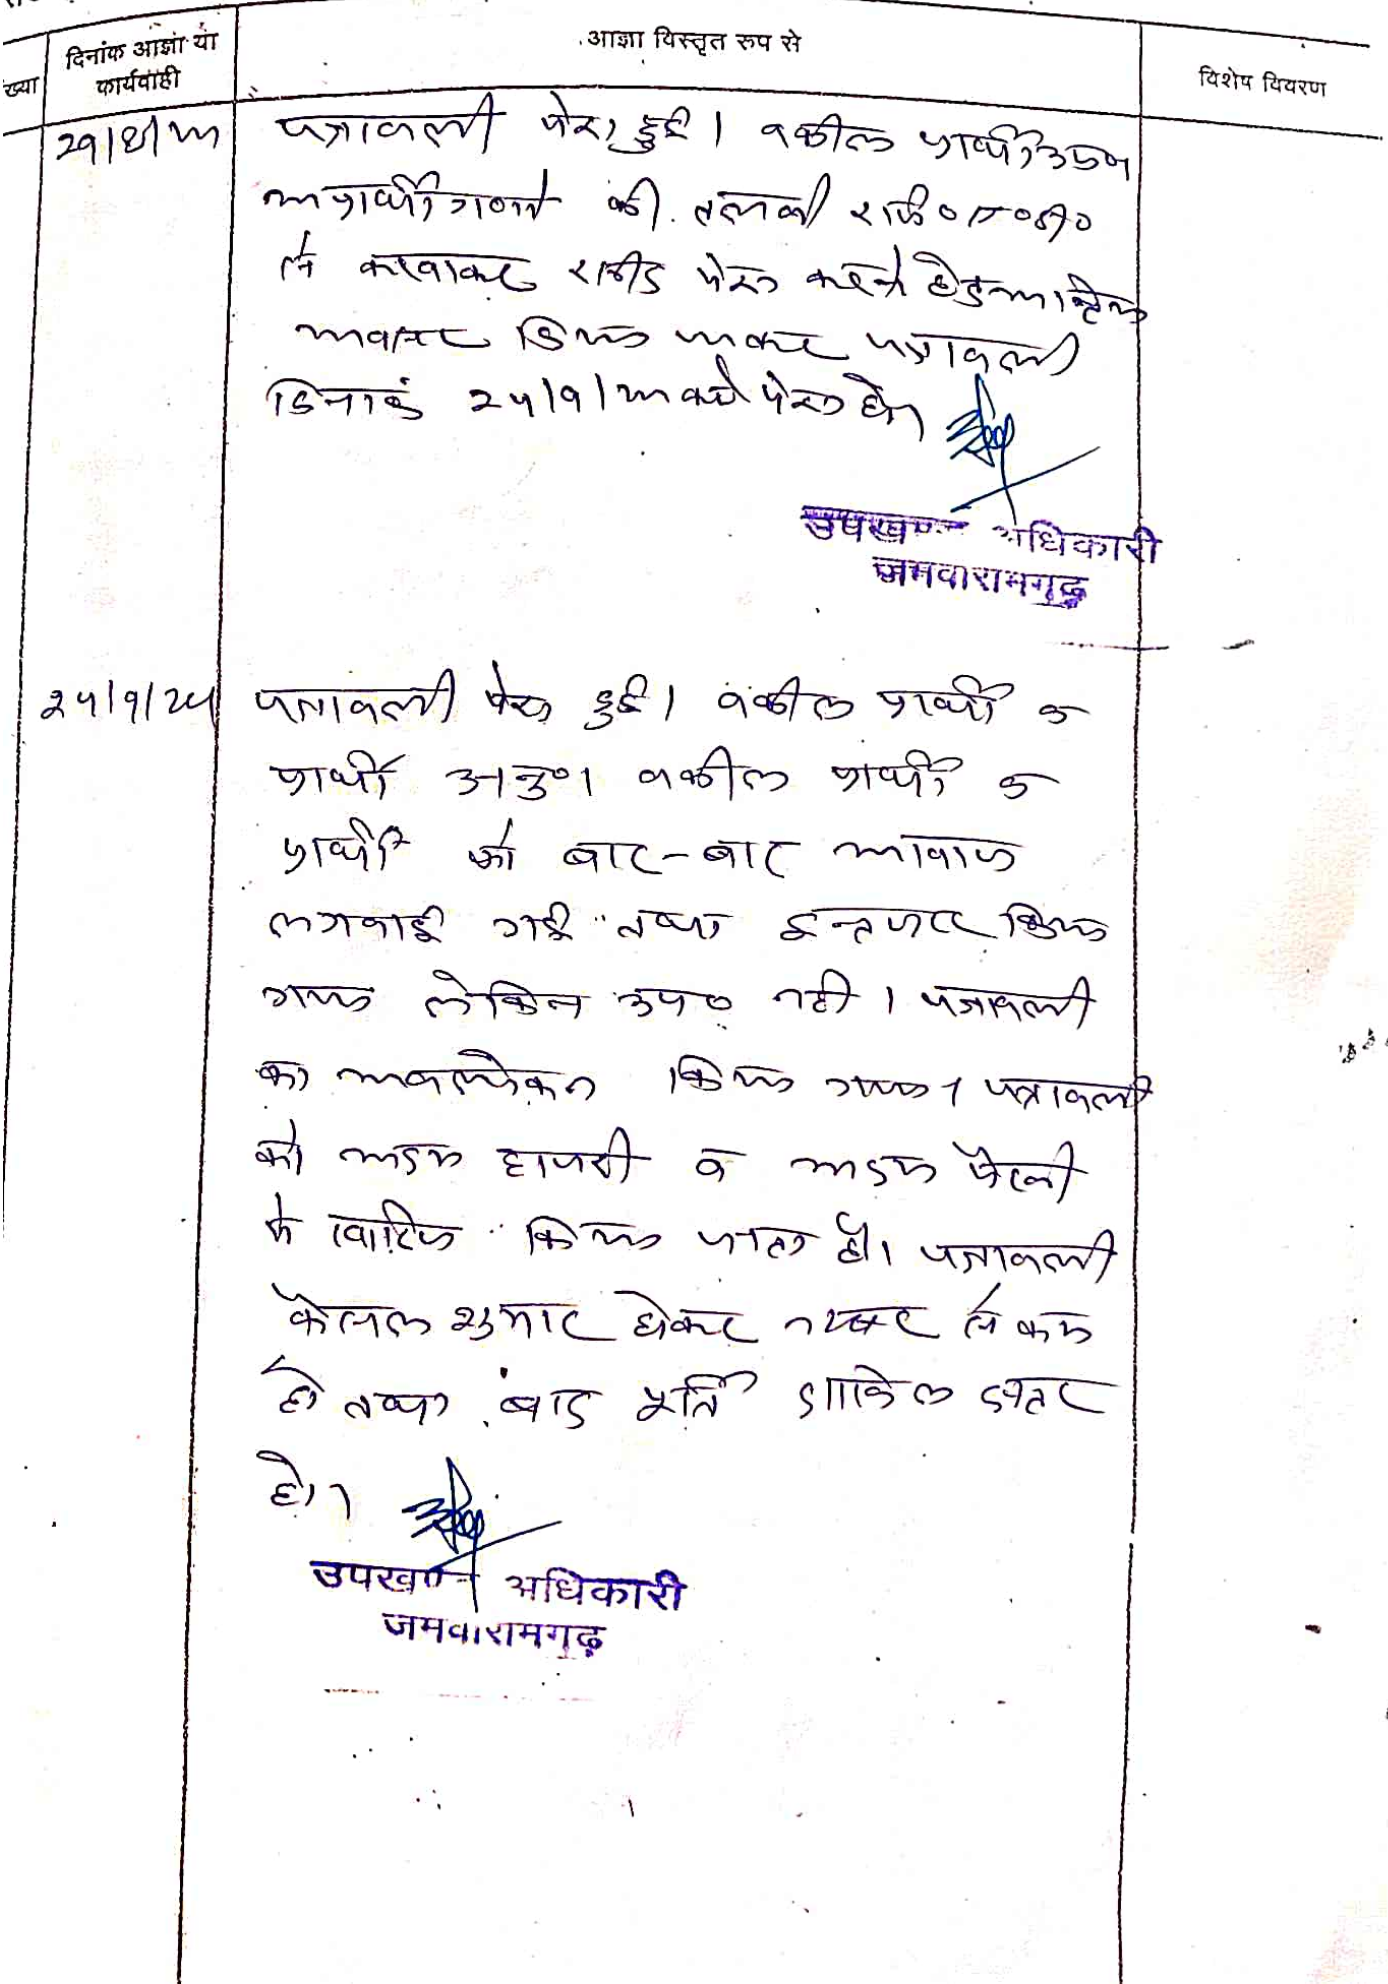 ख्या
दिनांक आज्ञा या
कार्यवाही
आज्ञा विस्तृत रूप से
विशेष विवरण
पत्रावली पेश हुई। वकील प्रार्थी उप०
अप्रार्थीगणों की तलबी
से करवाकर रसीद पेश करने हेतु अन्तिम
अवसर दिया जाकर पत्रावली
दिनांक २५/९/ को पेश हो।
उपखण्ड अधिकारी
जमवारामगढ़
२५/९/२५
पत्रावली पेश हुई। वकील प्रार्थी व
प्रार्थी अनु०। वकील प्रार्थी व
प्रार्थी को बार-बार आवाज
लगवाई गई तथा इन्तजार किया
गया लेकिन उप० नही। पत्रावली
का अवलोकन किया गया। पत्रावली
को अदम हाजरी व अदम पैरवी
मे खारिज किया जाता है। पत्रावली
फैसल शुमार होकर नम्बर से कम
हो तथा बाद पूर्ति दाखिल दफ्तर
हो।
उपखण्ड अधिकारी
जमवारामगढ़